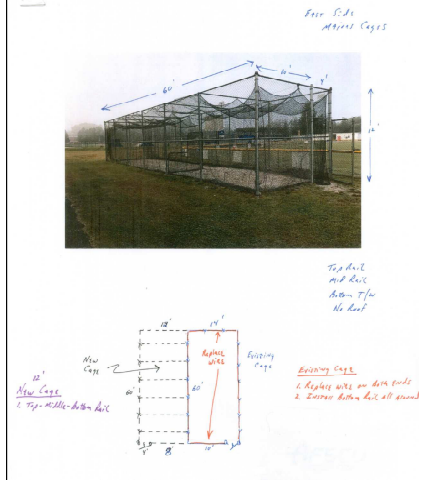 East Side
Majors Cages
60'
4'
12'
Top Rail
Mid Rail
Bottom T/W
No Roof
12'
14'
Replace
Wire
New
Cage
Existing
Cage
60'
60'
10'
4'
8'
12'
New Cage
1. Top-Middle-Bottom Rail
Existing Cage
1. Replace Wire on Both Ends
2. Install Bottom Rail all around